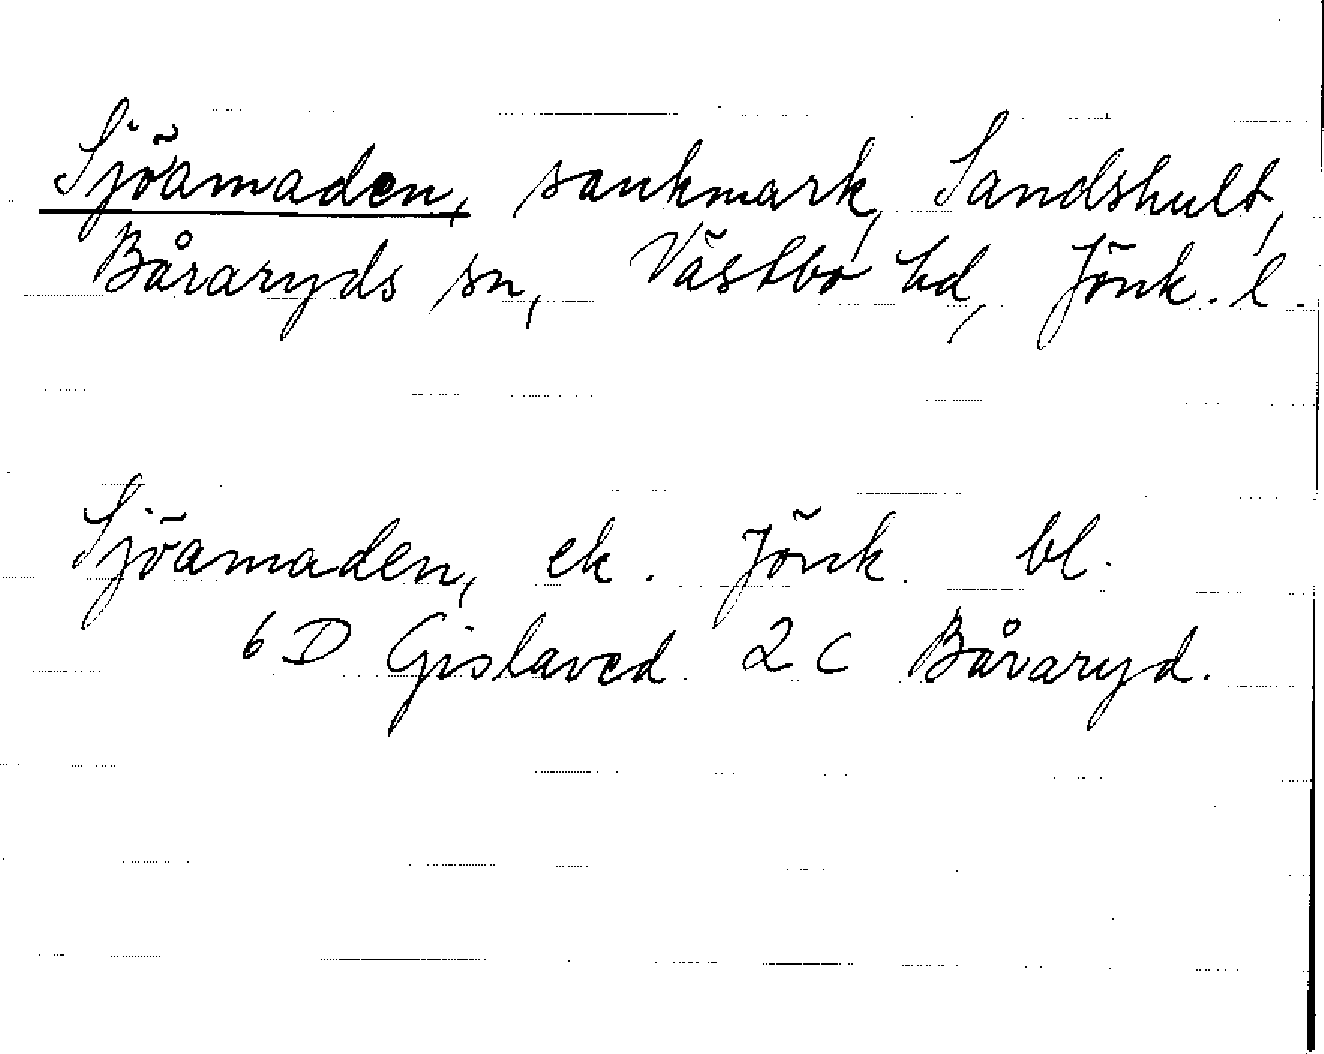 Sjöamaden, sankmark, Sandshult,
Båraryds sn, Västbo hd, Jönk. l.
Sjöamaden, ek. Jönk. bl.
6 D Gislaved 2 C Båraryd.